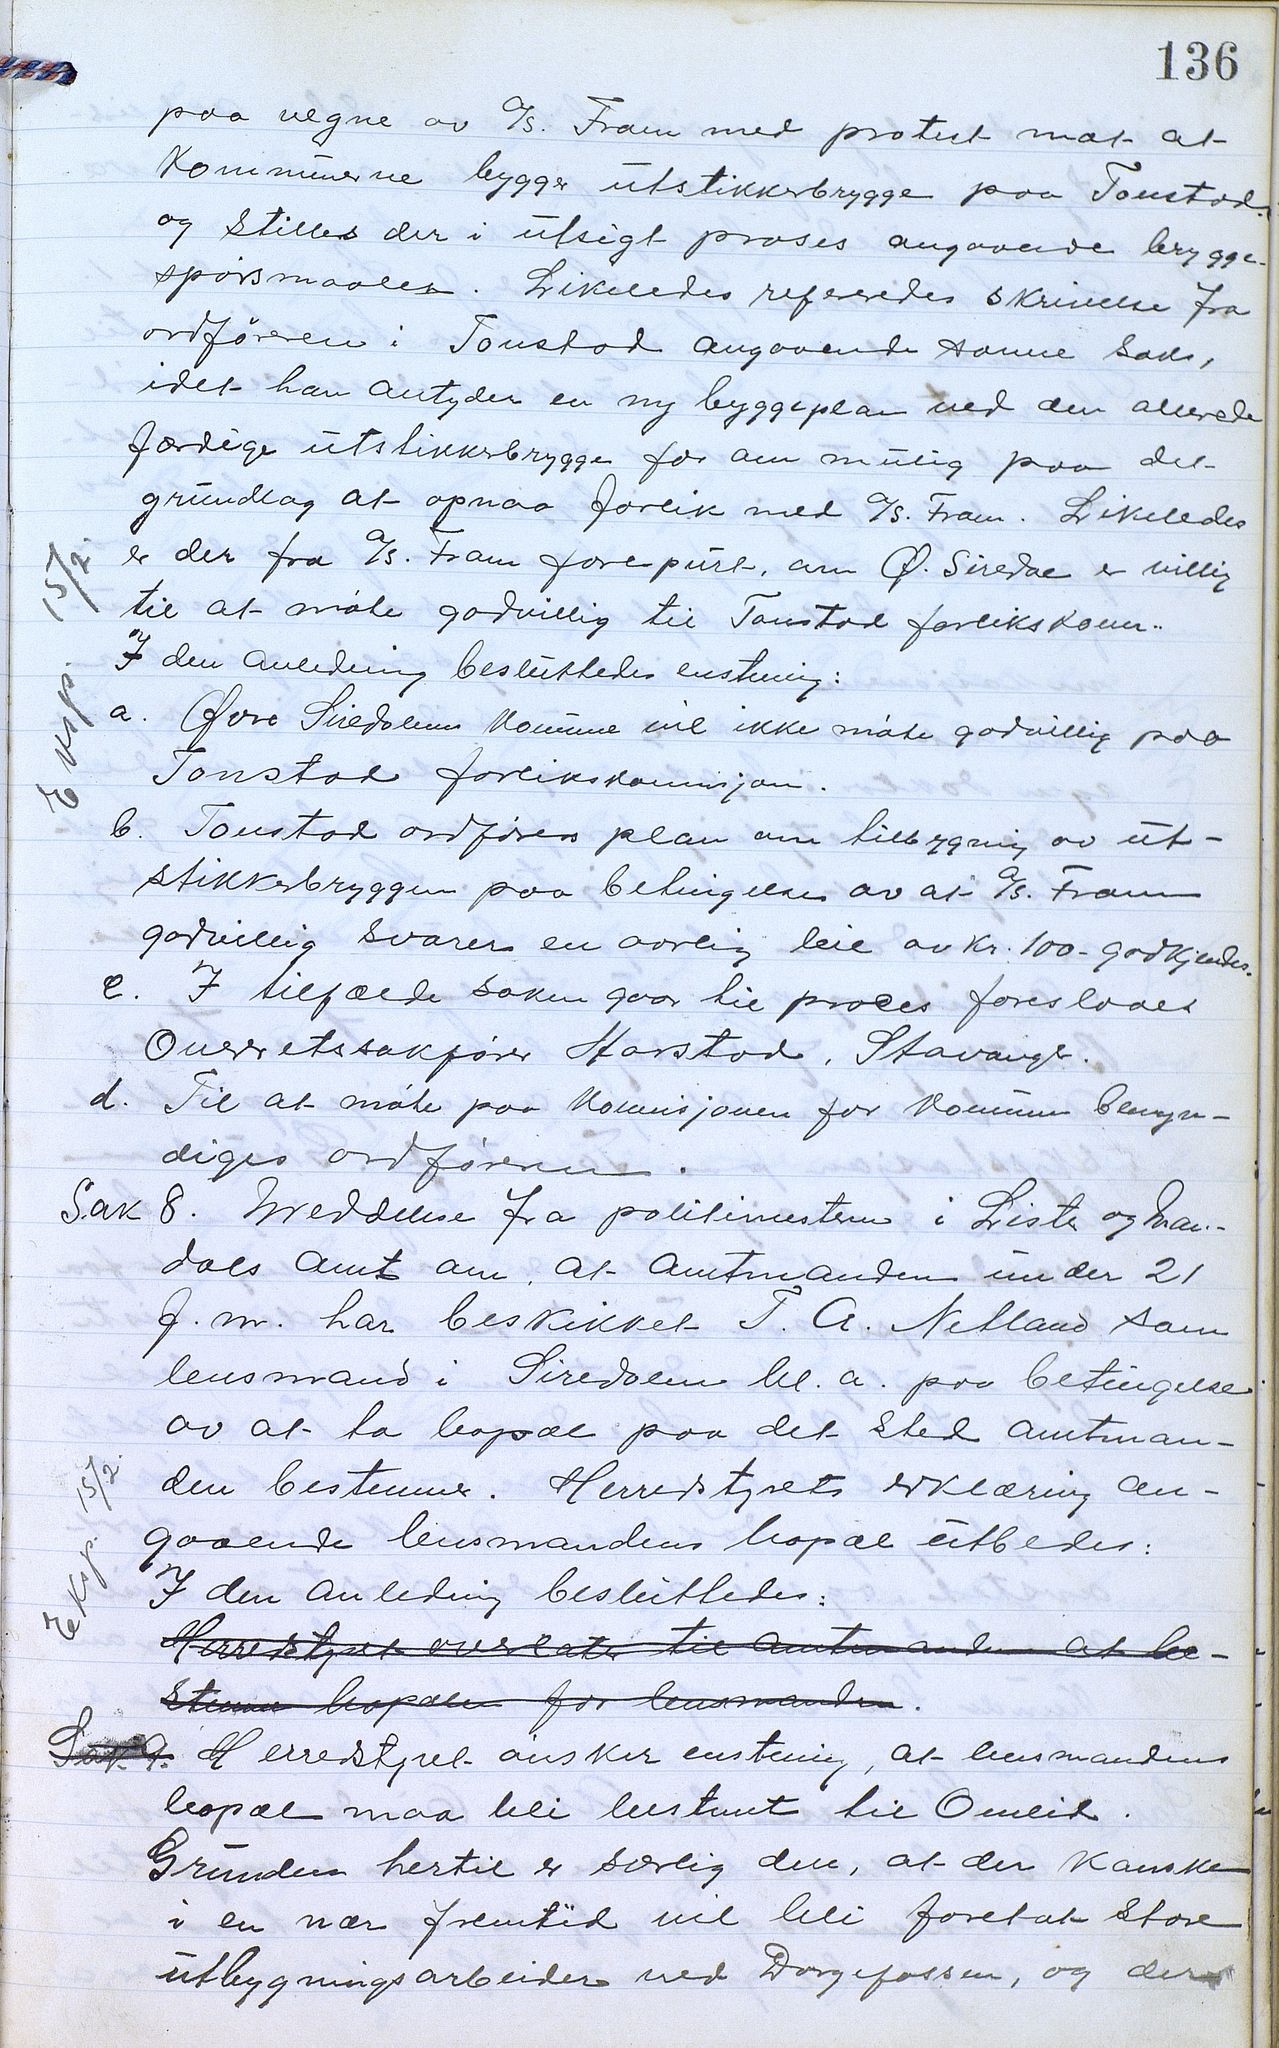 136
paa vegne av A/S. Fram med protest mot at
Kommunerne bygger utstikkerbrygge paa Tonstad
og stilles der i utsigt proses angaaende brygge-
spørsmaalet. Likeledes refereredes skrivelse fra
ordføreren i Tonstad angaaende samme sak,
idet han antyder en ny byggeplan ved den allerede
færdige utstikkerbrygge for om mulig paa det
grundlag at opnaa forlik med A/S. Fram. Likeledes
er der fra A/S. Fram forespurt, om Ø. Siredal er villig
til at møte godvillig til Tonstad forlikskom..
I den anledning besluttedes enstemig:
Eksp. 15/2.
a. Øvre Siredalens Komune vil ikke møte godvillig paa
Tonstad forlikskomisjon.
b. Tonstad ordførers plan om tilbygning av ut-
stikkerbryggen paa betingelse av at A/S. Fram
godvillig svarer en aarlig leie av kr. 100- godkjendes.
c. I tilfælde saken gaar til proces foreslaaes
Overretssakfører Harstad, Stavanger.
d. Til at møte paa Komisjonen for Komunen bemyn-
diges ordføreren.
Sak 8. Meddelelse fra politimesteren i Lister og Man-
dals Amt om, at Amtmanden under 21
f. m. har beskikket T. A. Netland som
lensmand i Siredalen bl. a. paa betingelse
av at ta bopæl paa det sted amtman-
den bestemmer. Herredstyrets erklæring an-
gaaende lensmandens bopæl utbedes:
Eksp. 15/2.
I den anledning besluttedes:
Herredstyret overlater til amtmanden at be-
stemme bopælen for lensmanden.
Sak 9. Herredstyret ønsker enstemig, at lensmandens
bopæl maa bli bestemt til Omlid.
Grunden hertil er særlig den, at der kanske
i en nær fremtid vil bli foretat store
utbygningsarbeider ved Dorgefossen, og der